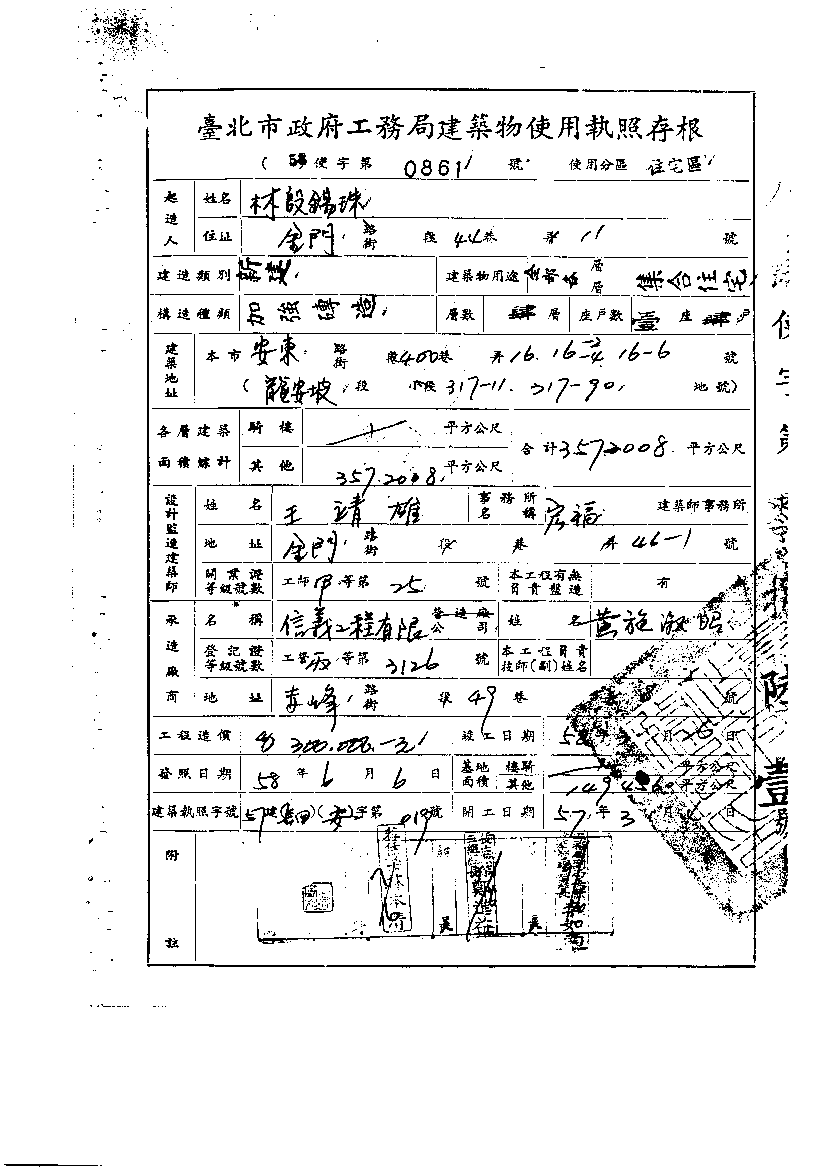 臺北市政府工務局建築物使用執照存根
(58使字第 0861 號 使用分區 住宅區
起造人 姓名 林段錫珠
住址 金門 路街 段 44巷 弄 11 號
建造類別 新建 建築物用途 全部各層 集合住宅
構造種類 加強磚造 層數 肆層 座戶數 壹座肆戶
建築地址 本市 安東 路街 巷400巷 弄16. 16-2 16-6 號
(龍安坡 段 小段 317-11. 317-90 地號)
各層建築面積煉計 騎樓 平方公尺 合計 357.2008 平方公尺
其他 357.2008 平方公尺
設計監造建築師 姓名 王靖雄 事務所名稱 宏福 建築師事務所
地址 金門 路街 段 巷 弄 46-1 號
開業證等級號數 工師甲等第 25 號 本工程有無負責監造 有
承造廠商 名稱 信義工程有限 營造廠公司 姓名 黃施淑昭
登記證等級號數 工營丙等第 3126 號 本工程負責技師(副)姓名
地址 赤峰 路街 段 49 巷 號
工程造價 300,000.-元 竣工日期 58年 月 日
發照日期 58年6月6日 基地面積 騎樓 平方公尺
其他 149.4560 平方公尺
建築執照字號 57建 (安)字第 019號 開工日期 57年3月 日
附註
使字第
陸壹號